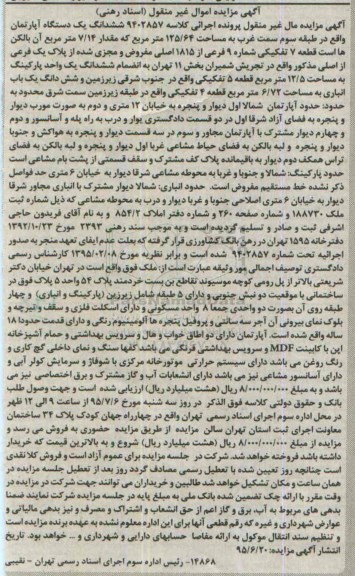 آگهی مزایده اموال غیر منقول (اسناد رهنی)
آگهی مزایده مال غیر منقول پرونده اجرائی کلاسه ۹۴۰۲۸۵۷ ششدانگ یک دستگاه آپارتمان
واقع در طبقه سوم سمت غرب به مساحت ۱۲۵/۶۴ متر مربع که مقدار ۷/۱۴ متر مربع آن بالکن
ها است قطعه ۷ تفکیکی شماره ۹ فرعی از ۱۸۱۵ اصلی مفروض و مجزی شده از پلاک یک فرعی
از اصلی مذکور واقع در تجریش شمیران بخش ۱۱ تهران به انضمام ششدانگ یک واحد پارکینگ
به مساحت ۱۲/۵ متر مربع قطعه ۵ تفکیکی واقع در جنوب شرقی زیرزمین و شش دانگ یک باب
انباری به مساحت ۶/۷۲ متر مربع قطعه ۴ تفکیکی واقع در طبقه زیرزمین سمت شرق محدود به
حدود: حدود آپارتمان شمالا اول دیوار و پنجره به خیابان ۱۲ متری و دوم به صورت مورب دیوار
و پنجره به فضای آزاد شرقا اول در دو قسمت دادگستری دیوار و درب به راه پله و آسانسور و دوم
و چهارم دیوار مشترک با آپارتمان مجاور و سوم در سه قسمت دیوار و پنجره به هواکش و جنوبا
دیوار و پنجره و لبه بالکن به فضای حیاط مشاعی غربا اول دیوار و پنجره و لبه بالکن به فضای
تراس همکف دوم دیواره به باقیمانده پلاک کف مشترک و سقف قسمتی از پشت بام مشاعی است
حدود پارکینگ: شمالا و جنوبا و غربا به محوطه مشاعی شرقا دیوار به خیابان ۶ متری حد فواصل
ذکر نشده خط مستقیم مفروض است. حدود انباری: شمالا دیوار مشترک با انباری مجاور شرقا
دیوار به خیابان ۶ متری اصلاحی جنوبا و غربا دیوار و درب به محوطه مشاعی که ذیل شماره ثبت
ملک ۱۸۸۷۳۰ و شماره صفحه ۲۶۰ و شماره دفتر املاک ۸۵۴/۲ و به نام آقای فریدون حاجی
اشرفی ثبت و صادر و تسلیم گردیده است و به موجب سند رهنی ۲۳۹۳ مورخ ۱۳۹۲/۱۰/۲۳
دفترخانه ۱۵۹۵ تهران در رهن بانک کشاورزی قرار گرفته که بعلت عدم ایفای تعهد منجر به صدور
اجرائیه تحت شماره ۹۴۰۲۸۵۷ شده است و برابر نظریه مورخ ۱۳۹۵/۰۲/۰۸ کارشناس رسمی
دادگستری توصیف اجمالی مورد وثیقه عبارت است از: ملک فوق واقع است در تهران خیابان دکتر
شریعتی بالاتر از پل رومی کوچه موسیوند تقاطع بن بست خردمند پلاک ۵۴ واحد ۵ پلاک فوق در
ساختمانی با موقعیت دو نبش جنوبی و دارای ۵ طبقه شامل زیرزمین (پارکینگ و انباری) و چهار
طبقه روی آن بصورت دو واحدی جمعاً ۸ واحد مسکونی و دارای اسکلت فلزی و سقف و تیرچه و
بلوک نمای بیرونی آن آجر سه سانتی و پروفیل پنجره ها آلومینیوم رنگی و دارای قدمت حدودا ۱۸
ساله واقع شده است. آپارتمان دارای دو اطاق خواب و هال و سرویس بهداشتی و حمام آشپزخانه
اپن با کابینت MDF و سرویس بهداشتی فرنگی می باشد کفها سنگ و نمای داخلی گچ کاری و
رنگ روغن می باشد دارای سیستم حرارتی موتورخانه مرکزی با شوفاژ و سرمایش کولر آبی و
دارای آسانسور مشاعی نیز می باشد دارای انشعابات آب و گاز مشترک و برق اختصاصی نیز می
باشد و به مبلغ ۸/۰۰۰/۰۰۰/۰۰۰ ریال (هشت میلیارد ریال) ارزیابی شده است و جهت وصول طلب
بانک و حقوق دولتی کلاسه فوق الذکر در روز سه شنبه مورخ ۹۵/۷/۶ از ساعت ۹ الی ۱۲ ظهر
در محل اداره سوم اجرای اسناد رسمی تهران واقع در چهارراه جهان کودک پلاک ۳۴ ساختمان
معاونت اجرای ثبت استان تهران سالن مزایده از طریق مزایده حضوری به فروش می رسد و
مزایده از مبلغ ۸/۰۰۰/۰۰۰/۰۰۰ ریال (هشت میلیارد ریال) شروع و به بالاترین قیمت که خریدار
داشته باشد فروخته خواهد شد. شرکت در جلسه مزایده برای عموم آزاد است و فروش کلا نقدی
است چنانچه روز تعیین شده با تعطیل رسمی مصادف گردد روز بعد از تعطیل جلسه مزایده در
همان ساعت و مکان تشکیل خواهد شد طالبین و خریداران می توانند جهت شرکت در مزایده در
وقت مقرر با ارائه چک تضمین شده بانک ملی به مبلغ پایه در جلسه مزایده شرکت نمایند ضمنا
بدهی های مربوط به آب، برق و گاز اعم از حق انشعاب و اشتراک و مصرف و نیز بدهی مالیاتی و
عوارض شهرداری و غیره که رقم قطعی آنها برای این اداره معلوم نشده به عهده برنده مزایده است
و تنظیم سند انتقال موکول به ارائه مفاصا حسابهای دارایی و شهرداری و ... خواهد بود. تاریخ
انتشار آگهی مزایده: ۹۵/۶/۲۰
۱۴۸۶۸- رئیس اداره سوم اجرای اسناد رسمی تهران - نفیسی